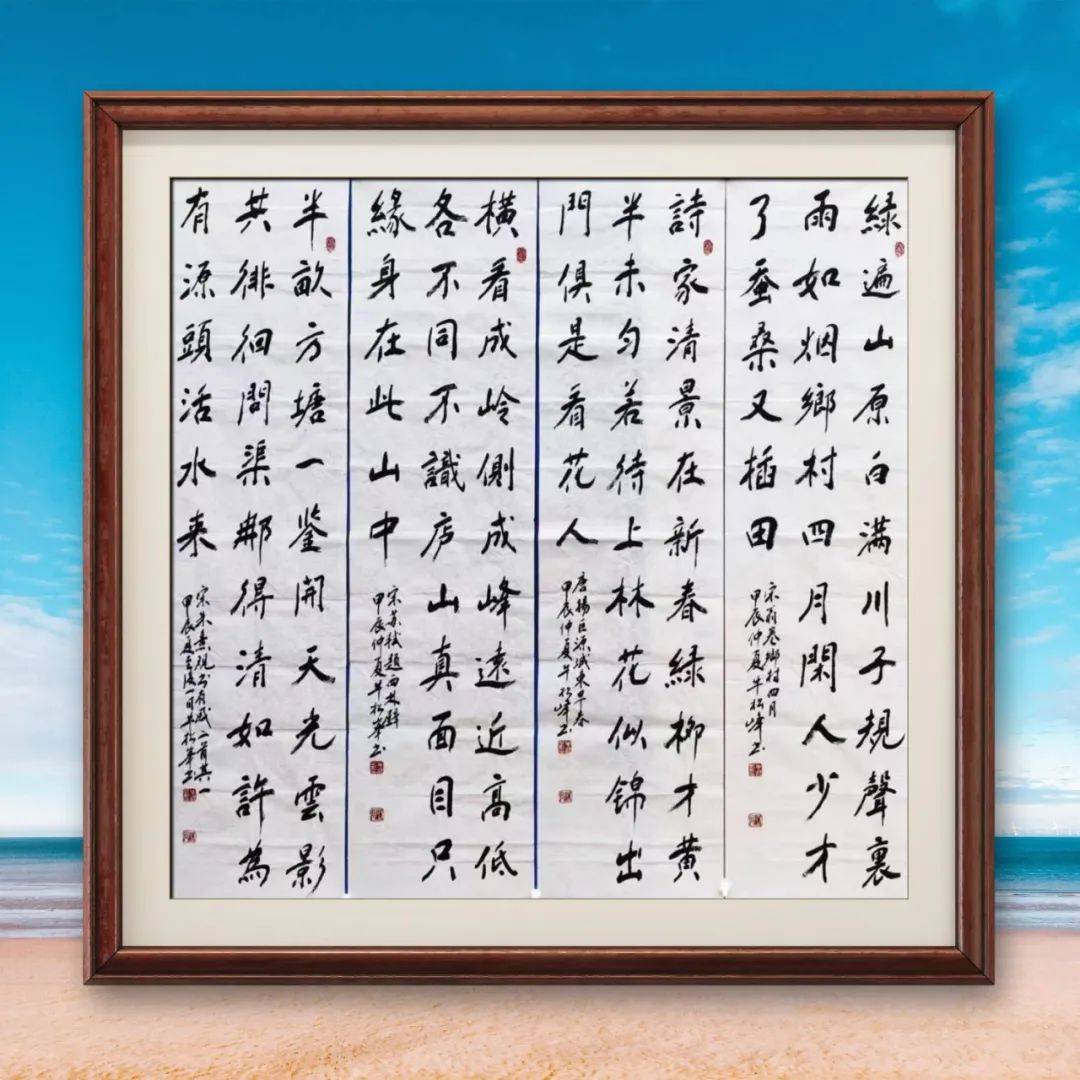 綠遍山原白满川子規聲裏
雨如烟鄉村四月閑人少才
了蚕桑又插田
宋翁卷鄉村四月
甲辰仲夏牛松峰书
詩家清景在新春綠柳才黄
半未匀若待上林花似錦出
門俱是看花人
唐楊巨源城東早春
甲辰仲夏牛松峰书
橫看成岭側成峰遠近高低
各不同不識庐山真面目只
緣身在此山中
宋苏軾題西林壁
甲辰仲夏牛松峰书
半畝方塘一鉴開天光雲影
共徘徊問渠那得清如許為
有源頭活水来
宋朱熹观书有感二首其一
甲辰夏至後一日牛松峰书